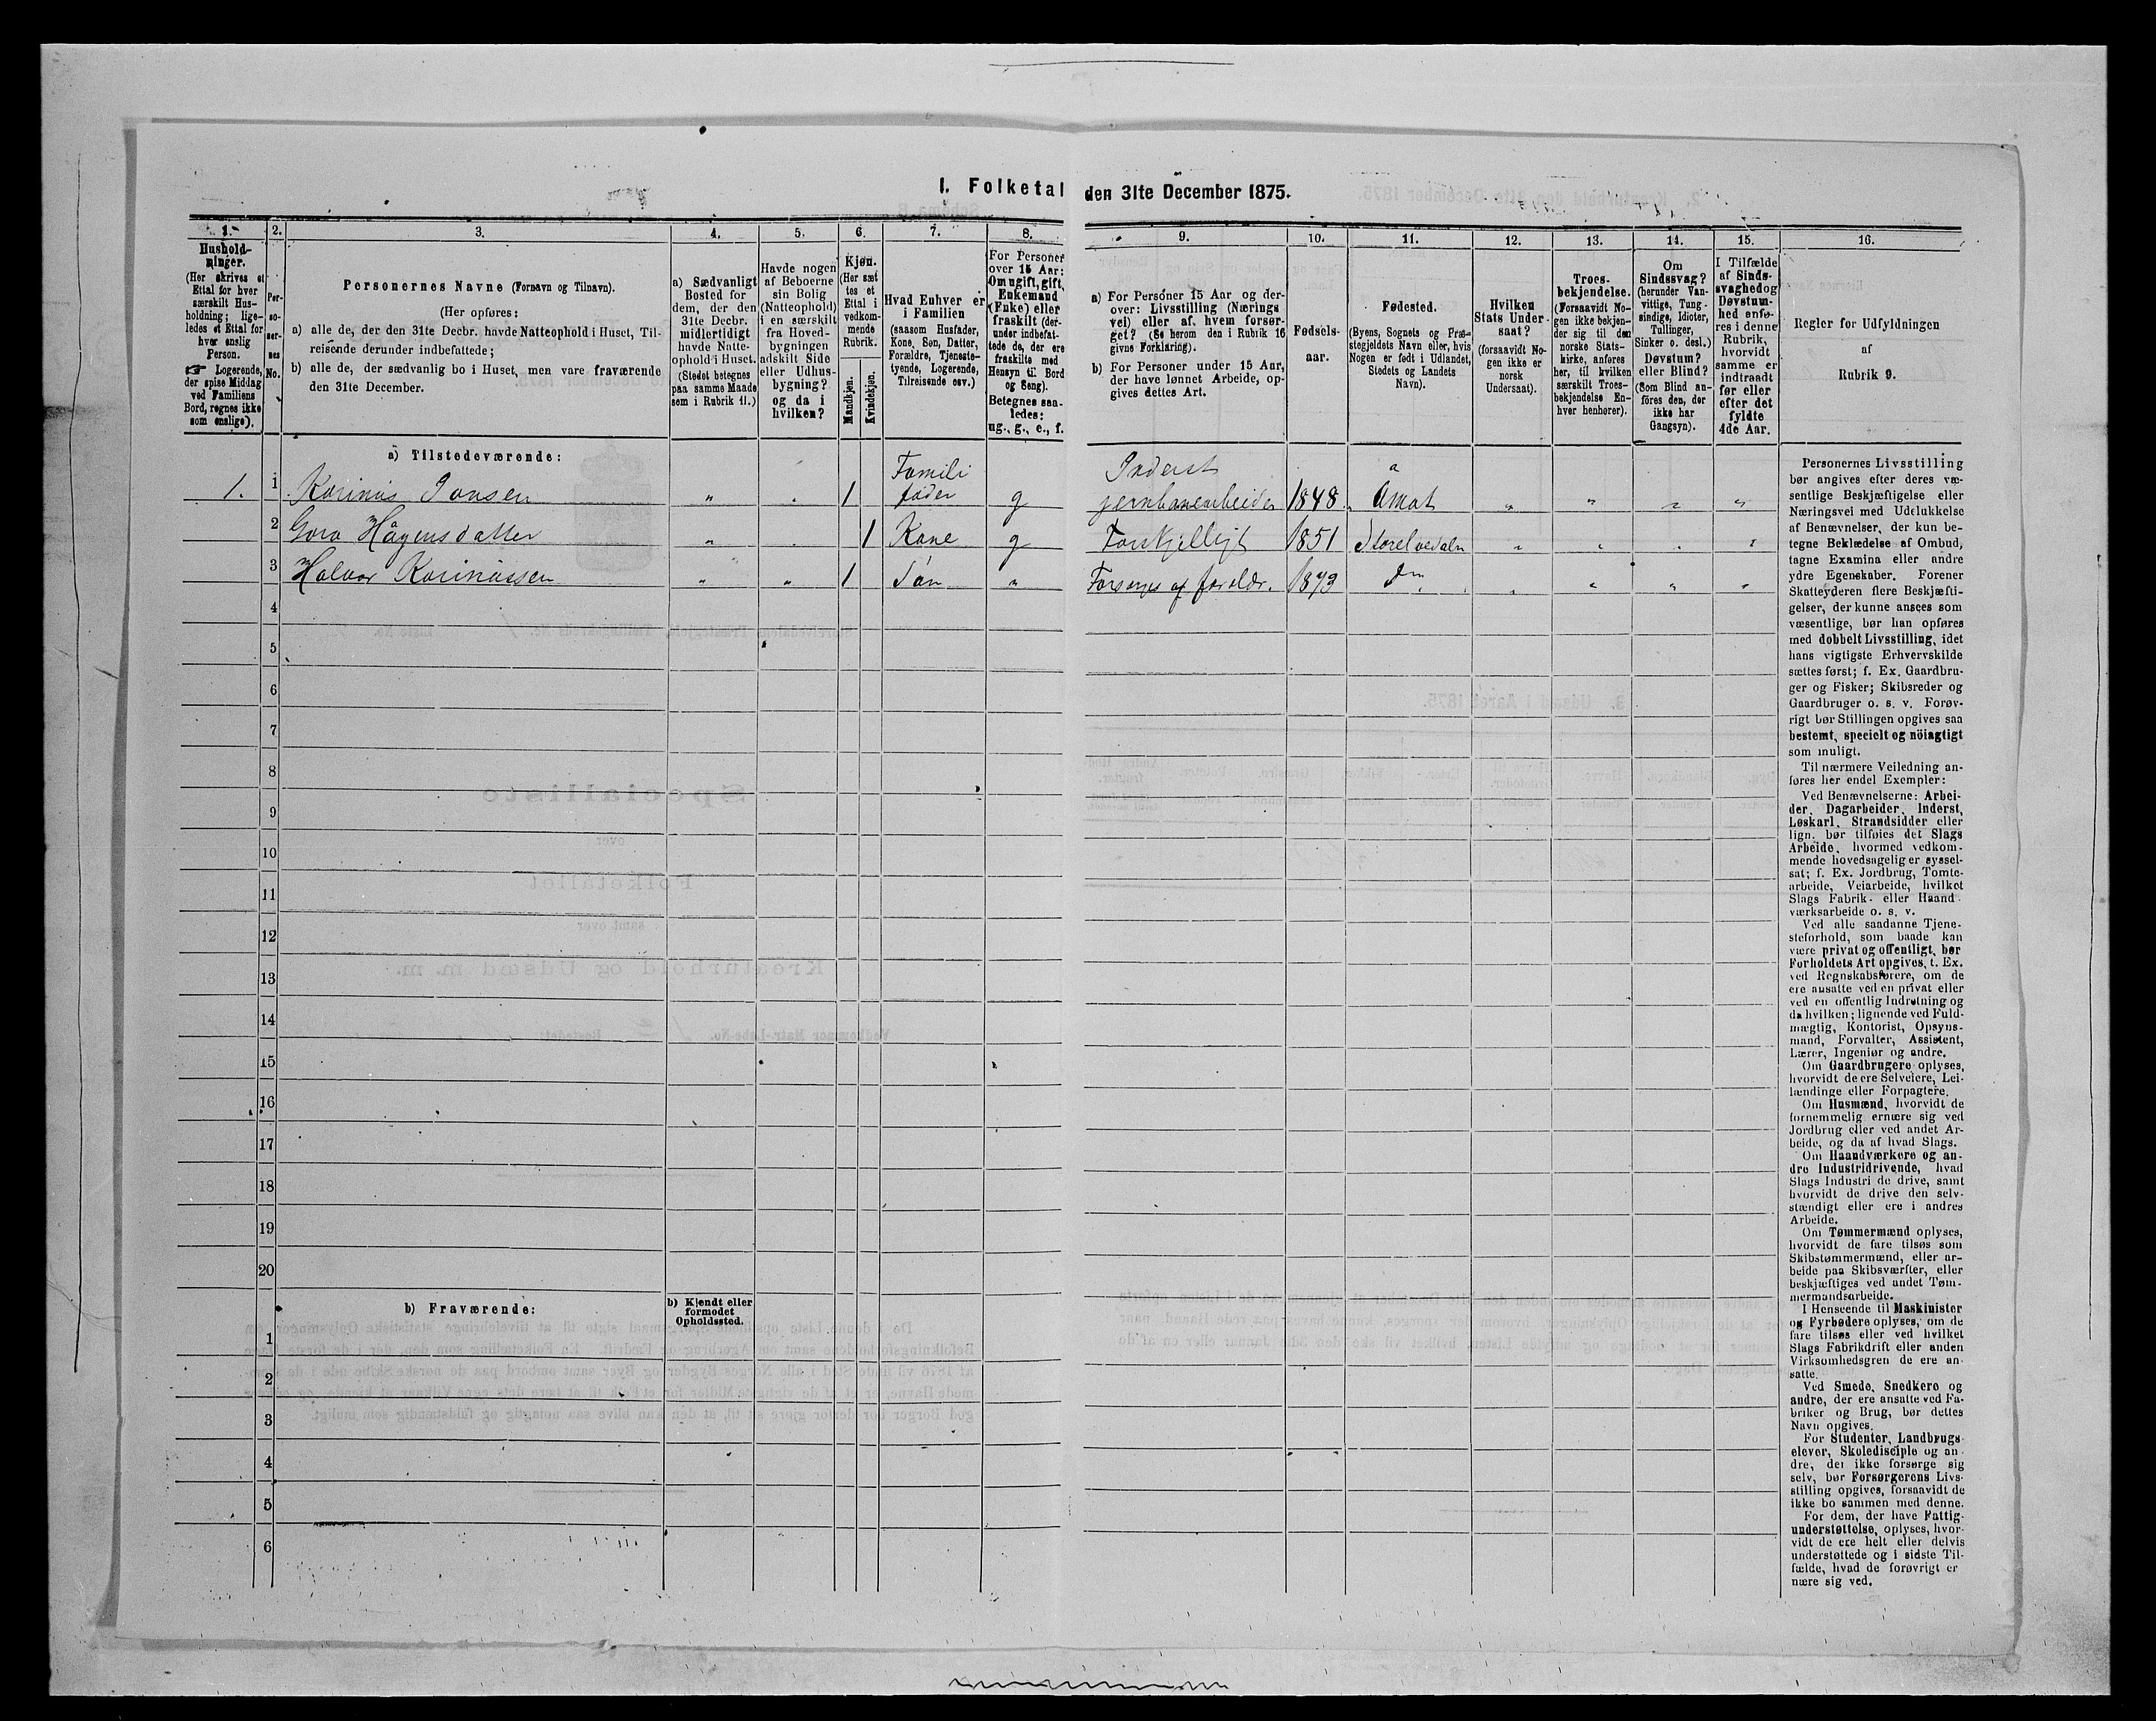 I. Folketal den 31te December 1875.
1.
Hushold-
ninger.
(Her skrives et
Ettal for hver
særskilt Hus-
holdning; lige-
ledes et Ettal for
hver enslig
Person.
☞ Logerende,
der spise Middag
ved Familiens
Bord, regnes ikke
som enslige).
2.
Per-
so-
ner-
nes
No.
3.
Personernes Navne (Fornavn og Tilnavn).
(Her opføres:
a) alle de, der den 31te Decbr. havde Natteophold i Huset, Til-
reisende derunder indbefattede;
b) alle de, der sædvanlig bo i Huset, men vare fraværende
den 31te December.
4.
a) Sædvanligt
Bosted for
dem, der den
31te Decbr.
midlertidigt
havde Natte-
ophold i Huset.
(Stedet betegnes
paa samme Maade
som i Rubrik 11.)
5.
Havde nogen
af Beboerne
sin Bolig
(Natteophold)
i en særskilt
fra Hoved-
bygningen
adskilt Side
eller Udhus-
bygning?
og da i
hvilken?
6.
Kjøn.
(Her sæt
tes et
Ettal i
vedkom-
mende
Rubrik.
Mandkjøn.
Kvindekjøn.
7.
Hvad Enhver er
i Familien
(saasom Husfader,
Kone, Søn, Datter,
Forældre, Tjeneste-
tyende, Logerende,
Tilreisende osv.)
8.
For Personer
over 15 Aar:
Om ugift, gift,
Enkemand
(Enke) eller
fraskilt (der-
under indbefat-
tede de, der ere
fraskilte med
Hensyn til Bord
og Seng).
Betegnes saa-
ledes:
ug., g., e., f.
9.
a) For Personer 15 Aar og der-
over: Livsstilling (Nærings
vei) eller af hvem forsør-
get? (Se herom den i Rubrik 16
givne Forklaring).
b) For Personer under 15 Aar,
der have lønnet Arbeide, op-
gives dettes Art.
10.
Fødsels-
aar.
11.
Fødested.
(Byens, Sognets og Præ-
stegjeldets Navn eller, hvis
Nogen er født i Udlandet,
Stedets og Landets
Navn).
12.
Hvilken
Stats Under-
saat?
(forsaavidt No-
gen ikke er
norsk
Undersaat).
13.
Troes-
bekjendelse.
(Forsaavidt No-
gen ikke bekjen-
der sig til den
norske Stats-
kirke, anføres
her, til hvilken
særskilt Troes-
bekjendelse En-
hver henhører).
14.
Om
Sindssvag?
(herunder Van-
vittige, Tung-
sindige, Idioter,
Tullinger,
Sinker o. desl.)
Døvstum?
eller Blind?
(Som Blind an-
føres den, der
ikke har
Gangsyn).
15.
I Tilfælde
af Sinds-
svaghed og
Døvstum-
hed anfø-
res i denne
Rubrik,
hvorvidt
samme er
indtraadt
før eller
efter det
fyldte
4de Aar.
16.
Regler for Udfyldningen
af
Rubrik 9.
a) Tilstedeværende:
1. 1 Karinus Jonsen „ „ 1 Famili fader g Inderst jernbanearbeider 1848 Amot „ „ „ „
2 Goro Hågensdatter „ „ 1 Kone g Forskjelligt 1851 Storelvedalen „ „ „ „
3 Halvor Karinussen „ „ 1 Søn „ Forsørges af foreldr. 1873 Do „ „ „ „
4
5
6
7
8
9
10
11
12
13
14
15
16
17
18
19
20
b) Fraværende:
b) Kjendt eller
formodet
Opholdssted.
1
2
3
4
5
6
Personernes Livsstilling
bør angives efter deres væ-
sentlige Beskjæftigelse eller
Næringsvei med Udelukkelse
af Benævnelser, der kun be-
tegne Beklædelse af Ombud,
tagne Examina eller andre
ydre Egenskaber. Forener
Skatteyderen flere Beskjæfti-
gelser, der kunne ansees som
væsentlige, bør han opføres
med dobbelt Livsstilling, idet
hans vigtigste Erhvervskilde
sættes først; f. Ex. Gaardbru-
ger og Fisker; Skibsreder og
Gaardbruger o. s. v. Forøv-
rigt bør Stillingen opgives saa
bestemt, specielt og nöiagtigt
som muligt.
Til nærmere Veiledning an-
føres her endel Exempler:
Ved Benævnelserne: Arbei-
der, Dagarbeider, Inderst,
Løskarl, Strandsidder eller
lign. bør tilføies det Slags
Arbeide, hvormed vedkom-
mende hovedsagelig er syssel-
sat; f. Ex. Jordbrug, Tomte-
arbeide, Veiarbeide, hvilket
Slags Fabrik- eller Haand-
værksarbeide o. s. v.
Ved alle saadanne Tjene-
steforhold, som baade kan
være privat og offentligt, bør
Forholdets Art opgives, f. Ex.
ved Regnskabsførere, om de
ere ansatte ved en privat eller
ved en offentlig Indretning og
da hvilken; lignende ved Fuld-
mægtig, Kontorist, Opsyns-
mand, Forvalter, Assistent,
Lærer, Ingeniør og andre.
Om Gaardbrugere oplyses,
hvorvidt de ere Selveiere, Lei-
lændinge eller Forpagtere.
Om Husmænd, hvorvidt de
fornemmelig ernære sig ved
Jordbrug eller ved andet Ar-
beide, og da af hvad Slags.
Om Haandværkere og an-
dre Industridrivende, hvad
Slags Industri de drive, samt
hvorvidt de drive den selv-
stændigt eller ere i andres
Arbeide.
Om Tømmermænd oplyses,
hvorvidt de fare tilsøs som
Skibstømmermænd, eller ar-
beide paa Skibsværfter, eller
beskjæftiges ved andet Tøm-
mermandsarbeide.
I Henseende til Maskinister
og Fyrbødere oplyses, om de
fare tilsøs eller ved hvilket
Slags Fabrikdrift eller anden
Virksomhedsgren de ere an-
satte.
Ved Smede, Snedkere og
andre, der ere ansatte ved Fa-
briker og Brug, bør dettes
Navn opgives.
For Studenter, Landbrugs-
elever, Skoledisciple og an-
dre, der ikke forsørge sig
selv, bør Forsørgerens Livs-
stilling opgives, forsaavidt de
ikke bo sammen med denne.
For dem, der have Fattig-
understøttelse, oplyses, hvor-
vidt de ere helt eller delvis
understøttede og i sidste Til-
fælde, hvad de forøvrigt er-
nære sig ved.